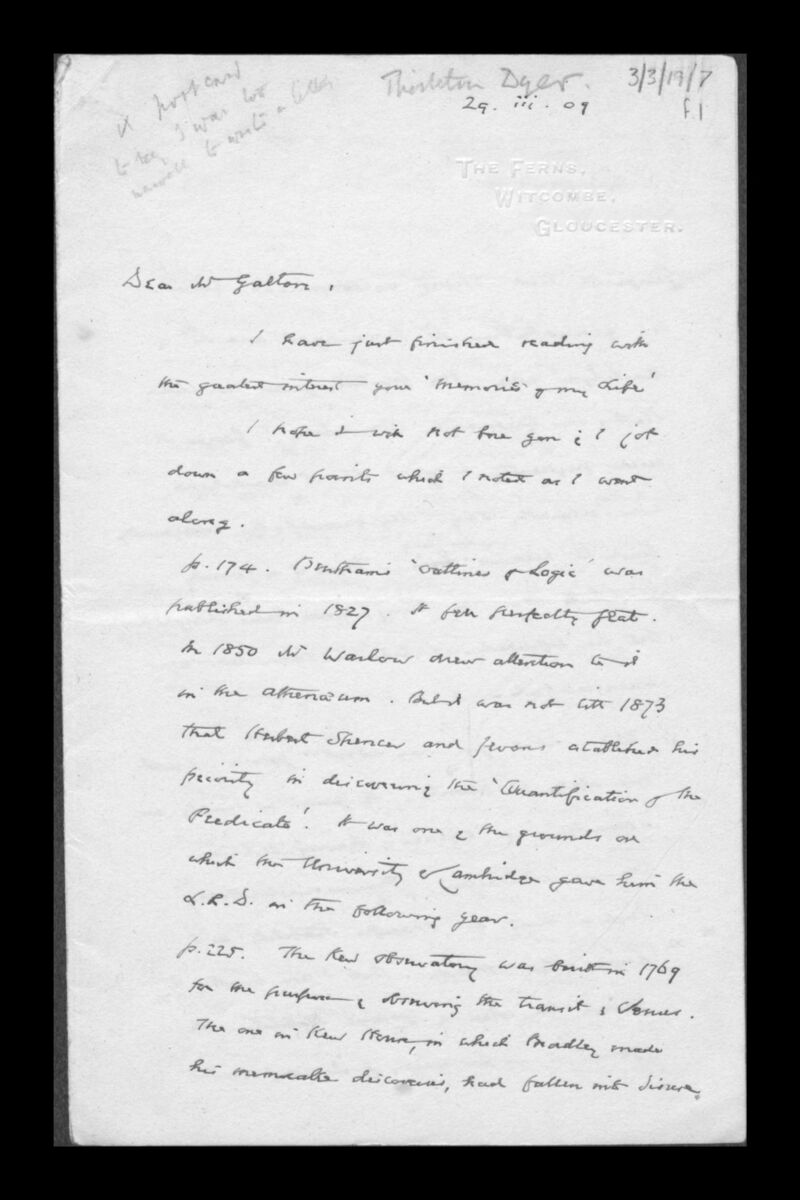 A postcard
to say I was too
unwell to write a letter
Thiselton Dyer.
3/3/19/7
f1
29. iii. 09
THE FERNS,
WITCOMBE,
GLOUCESTER.
Dear Mr Galton,
I have just finished reading with
the greatest interest your 'Memories of my Life'
I hope I will not bore you if I jot
down a few points which I noted as I went
along.
p. 174. Bentham's 'Outlines of Logic' was
published in 1827. It fell perfectly flat.
In 1850 Mr Warlow drew attention to it
in the Athenæum. But it was not till 1873
that Herbert Spencer and Jevons established his
priority in discovering the 'Quantification of the
Predicate'. It was one of the grounds on
which the University of Cambridge gave him the
L.L.D. in the following year.
p. 225. The Kew observatory was built in 1769
for the purpose of observing the transit of Venus.
The one in Kew House, in which Bradley made
his memorable discoveries, had fallen into disuse.